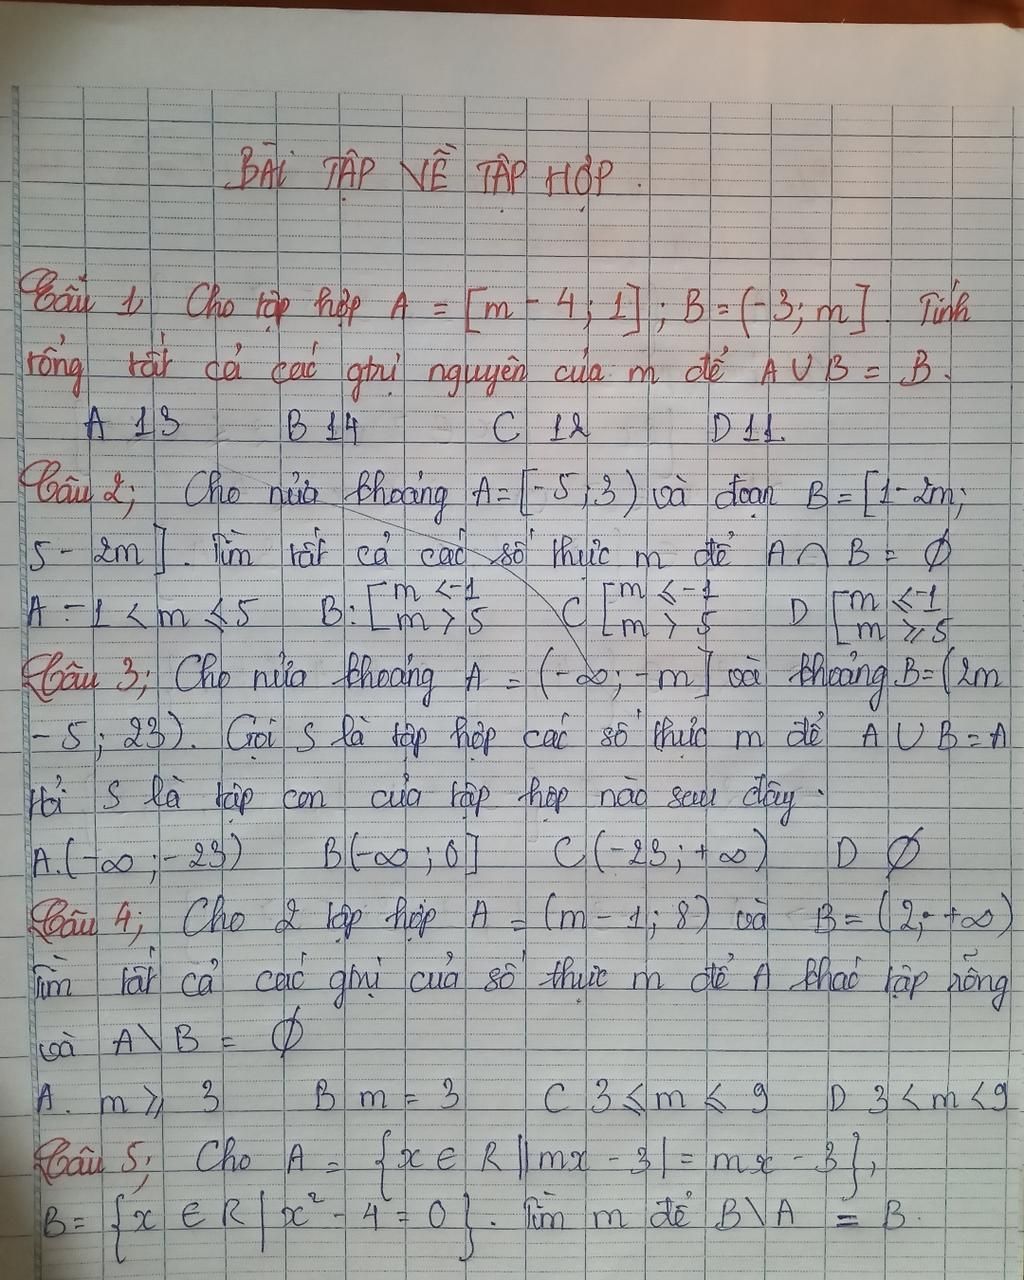 BÀI TẬP VỀ TẬP HỢP.
Câu 1, Cho tập hợp A = [m - 4; 1]; B = (-3; m]. Tính
tổng tất cả các gtrị nguyên của m để A ∪ B = B.
A 13 B 14 C 12 D 11.
Câu 2; Cho nửa khoảng A = [-5; 3) và đoạn B = [1 - 2m;
5 - 2m]. Tìm tất cả các số thực m để A ∩ B = ∅
A - 1 < m ≤ 5 B: [m < -1 m > 5 C [m ≤ -1 m > 5 D [m ≤ -1 m ≥ 5
Câu 3; Cho nửa khoảng A = (-∞; -m] và khoảng B = (2m
- 5; 23). Gọi S là tập hợp các số thực m để A ∪ B = A
Hỏi S là tập con của tập hợp nào sau đây.
A. (-∞; -23) B (-∞; 0] C (-23; +∞) D ∅
Câu 4; Cho 2 tập hợp A = (m - 1; 8) và B = (2; +∞)
Tìm tất cả các gtrị của số thực m để A khác tập rỗng
và A \ B = ∅
A. m ≥ 3 B m = 3 C 3 ≤ m ≤ 9 D 3 < m < 9
Câu 5; Cho A = {x ∈ R | |mx - 3| = mx - 3},
B = {x ∈ R | x² - 4 = 0}. Tìm m để B \ A = B.